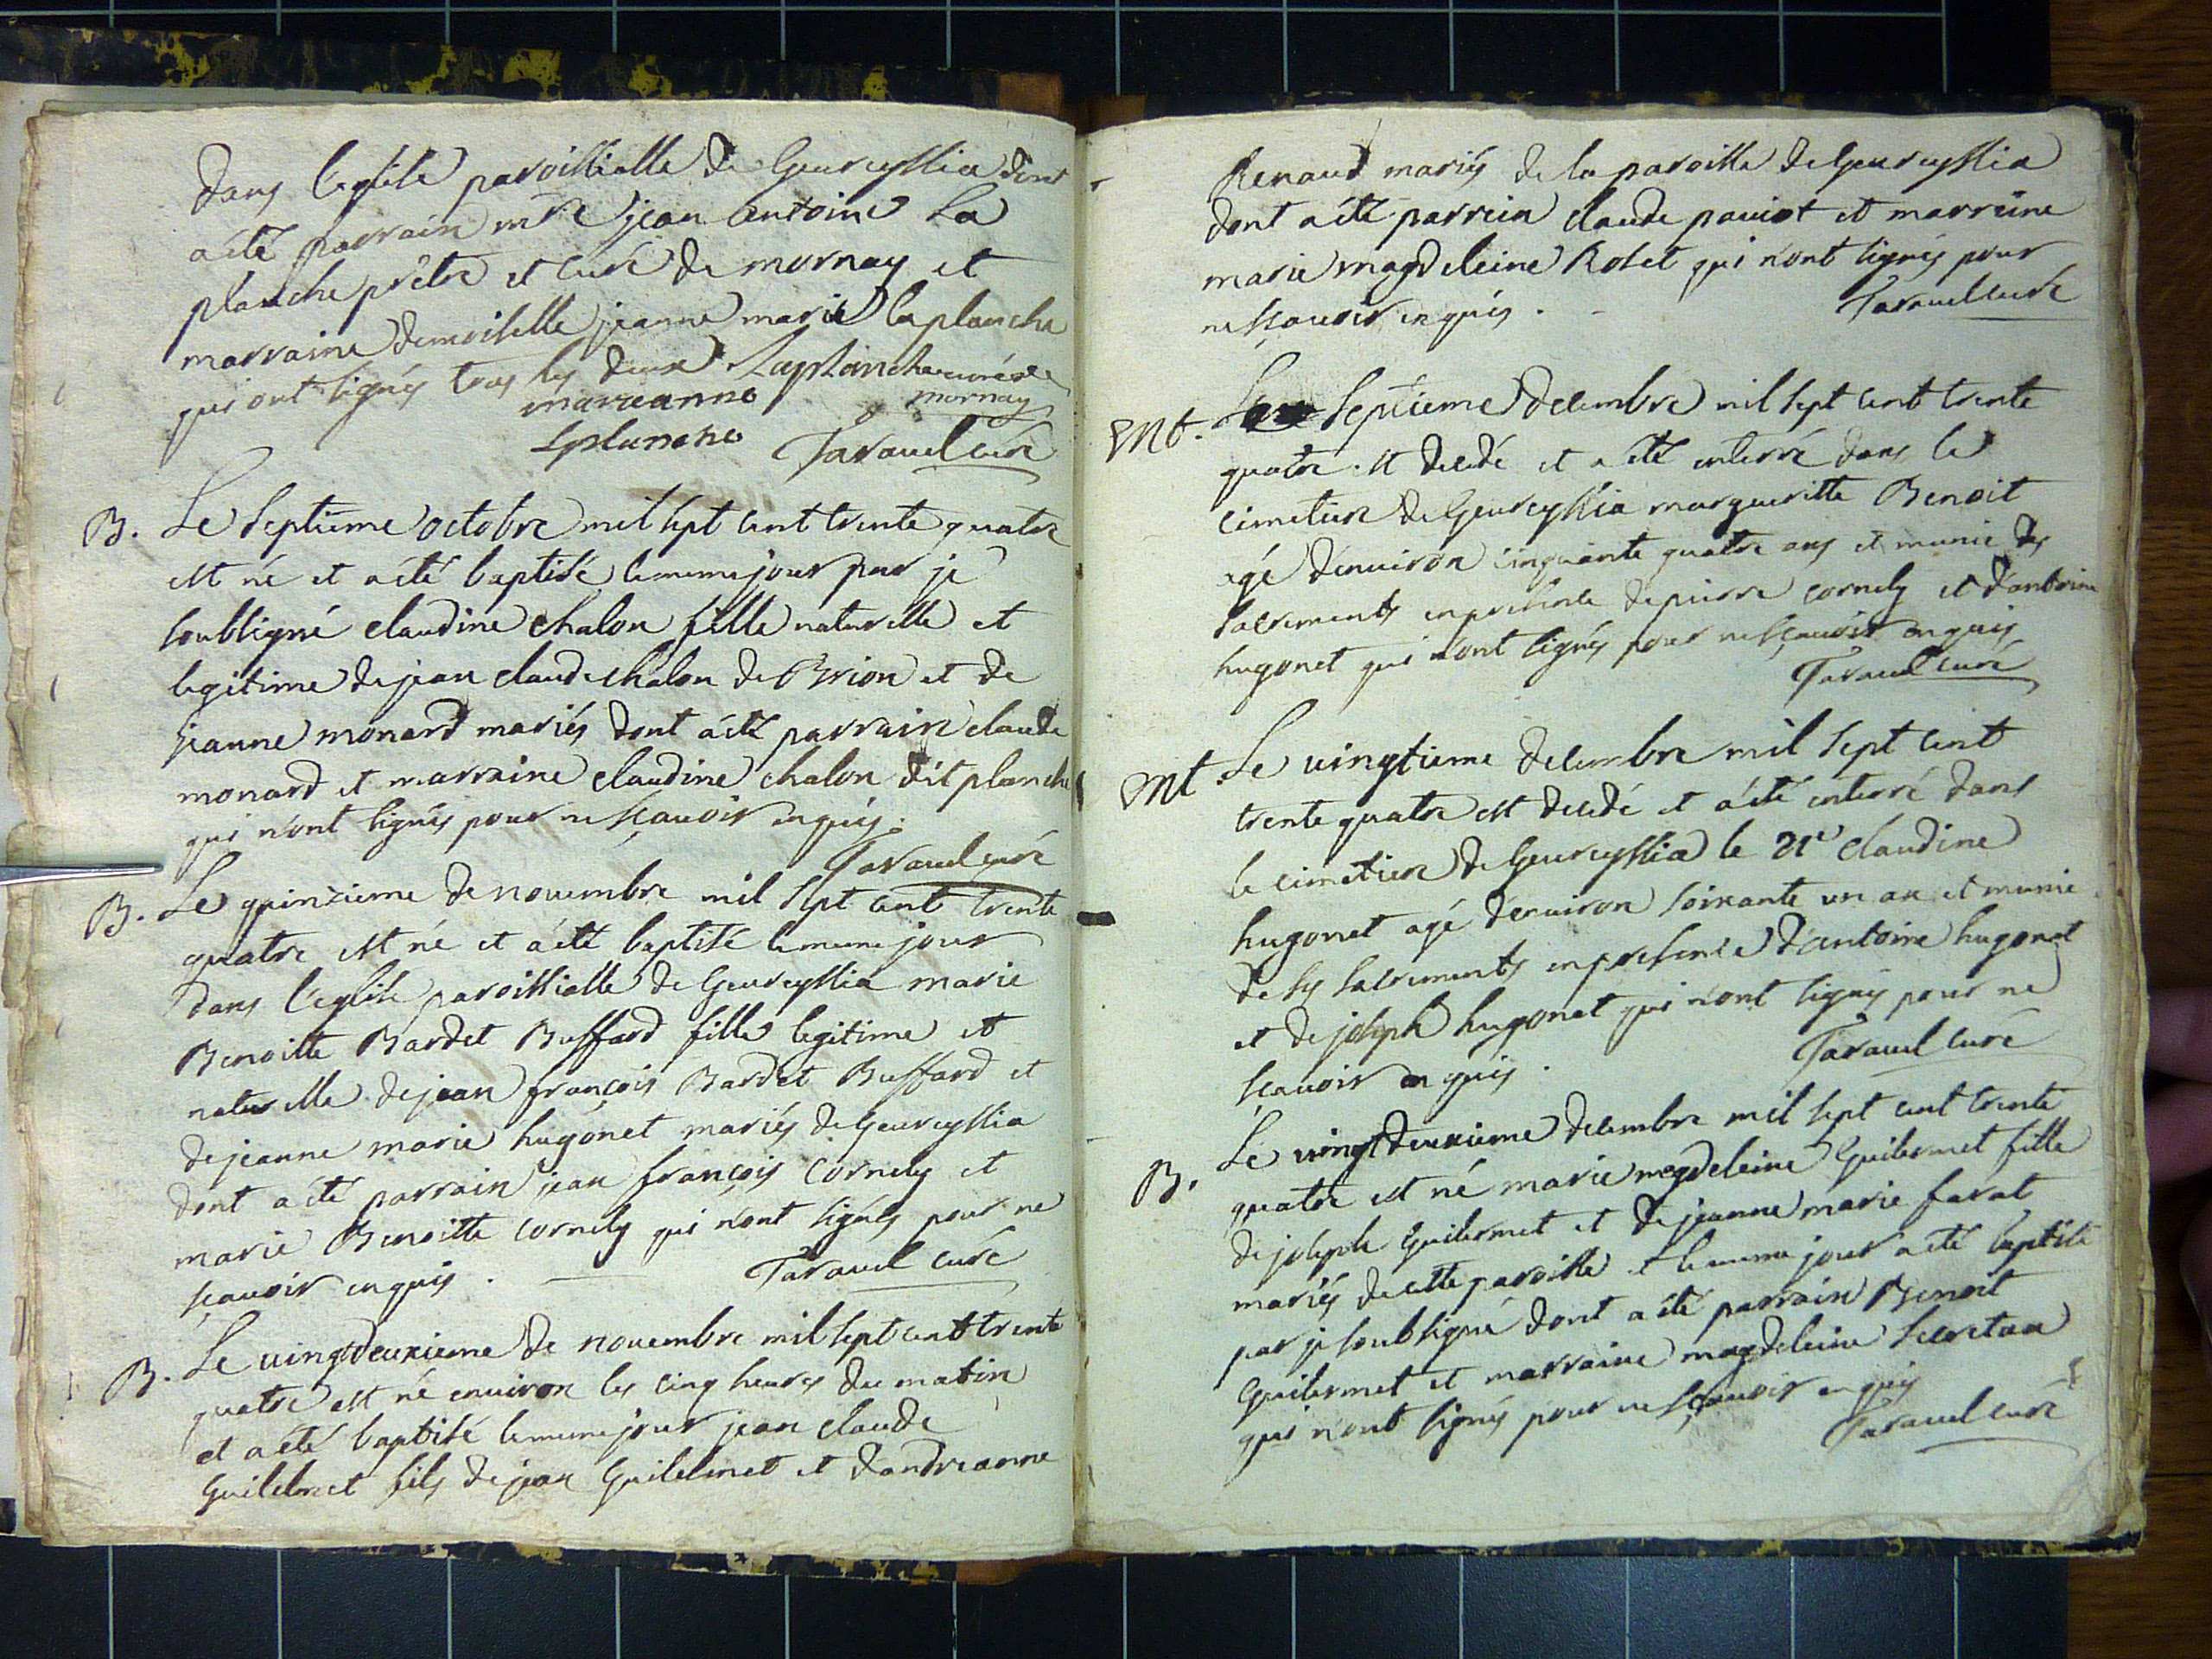 dans l'eglise paroissialle de Geurcyssia dont
a été parrain mre jean antoine La
planche prêtre et curé de mornay et
marraine demoiselle jeanne marie laplanche
qui ont signés tous les deux Laplanche curé de
mornay
marieanne
Lplanche Taravel curé
B. Le septieme octobre mil sept cent trente quatre
est né et a été baptisé le meme jour par je
soubsigné claudine chalon fille naturelle et
legitime de jean claude chalon de Brion et de
jeanne monard mariés dont a été parrain claude
monard et marraine claudine chalon dit planche
qui n'ont signés pour ne sçauoir enquis.
Taravel curé
B. Le quinzieme de nouembre mil sept cent trente
quatre est né et a été baptisé le meme jour
dans l'eglise paroissialle de Geurcyssia marie
Benoitte Bardet Buffard fille legitime et
naturelle de jean françois Bardet Buffard et
de jeanne marie hugonet mariés de Geurcyssia
dont a été parrain jean françois Cornely et
marie Benoitte cornely qui n'ont signés pour ne
sçauoir enquis. Taravel curé
B. Le uingtdeuxieme de nouembre mil sept cent trente
quatre est né enuiron les cinq heures du matin
et a été baptisé le meme jour jean claude
Guilelmet fils de jean Guilelmet et d'andreanne
Renaud mariés de la paroisse de Geurcyssia
dont a été parrein claude pauiot et marreine
marie magdeleine Rolet qui n'ont signés pour
ne sçauoir enquis. Taravel curé
Mt. Le septieme decembre mil sept cent trente
quatre est decedé et a été enterré dans le
cimetiere de Geurcyssia margueritte Benoit
agé d'enuiron cinquante quatre ans et munie des
sacrements en presence de pierre cornely et d'antoine
hugonet qui n'ont signés pour ne sçauoir enquis
Taravel curé
Mt. Le uingtieme decembre mil sept cent
trente quatre est decedé et a été enterré dans
le cimetiere de Geurcyssia le 21e claudine
hugonet agé d'enuiron soixante un an et munie
de ses sacrements en presence d'antoine hugonet
et de joseph hugonet qui n'ont signés pour ne
sçauoir enquis. Taravel curé
B. Le uingtdeuxieme decembre mil sept cent trente
quatre est né marie magdeleine Guilermet fille
de joseph Guilermet et de jeanne marie farat
mariés de cette paroisse et le meme jour a été baptisé
par je soubsigné dont a été parrain Benoit
Guilermet et marraine magdeleine Secretan
qui n'ont signés pour ne sçauoir enquis
Taravel curé